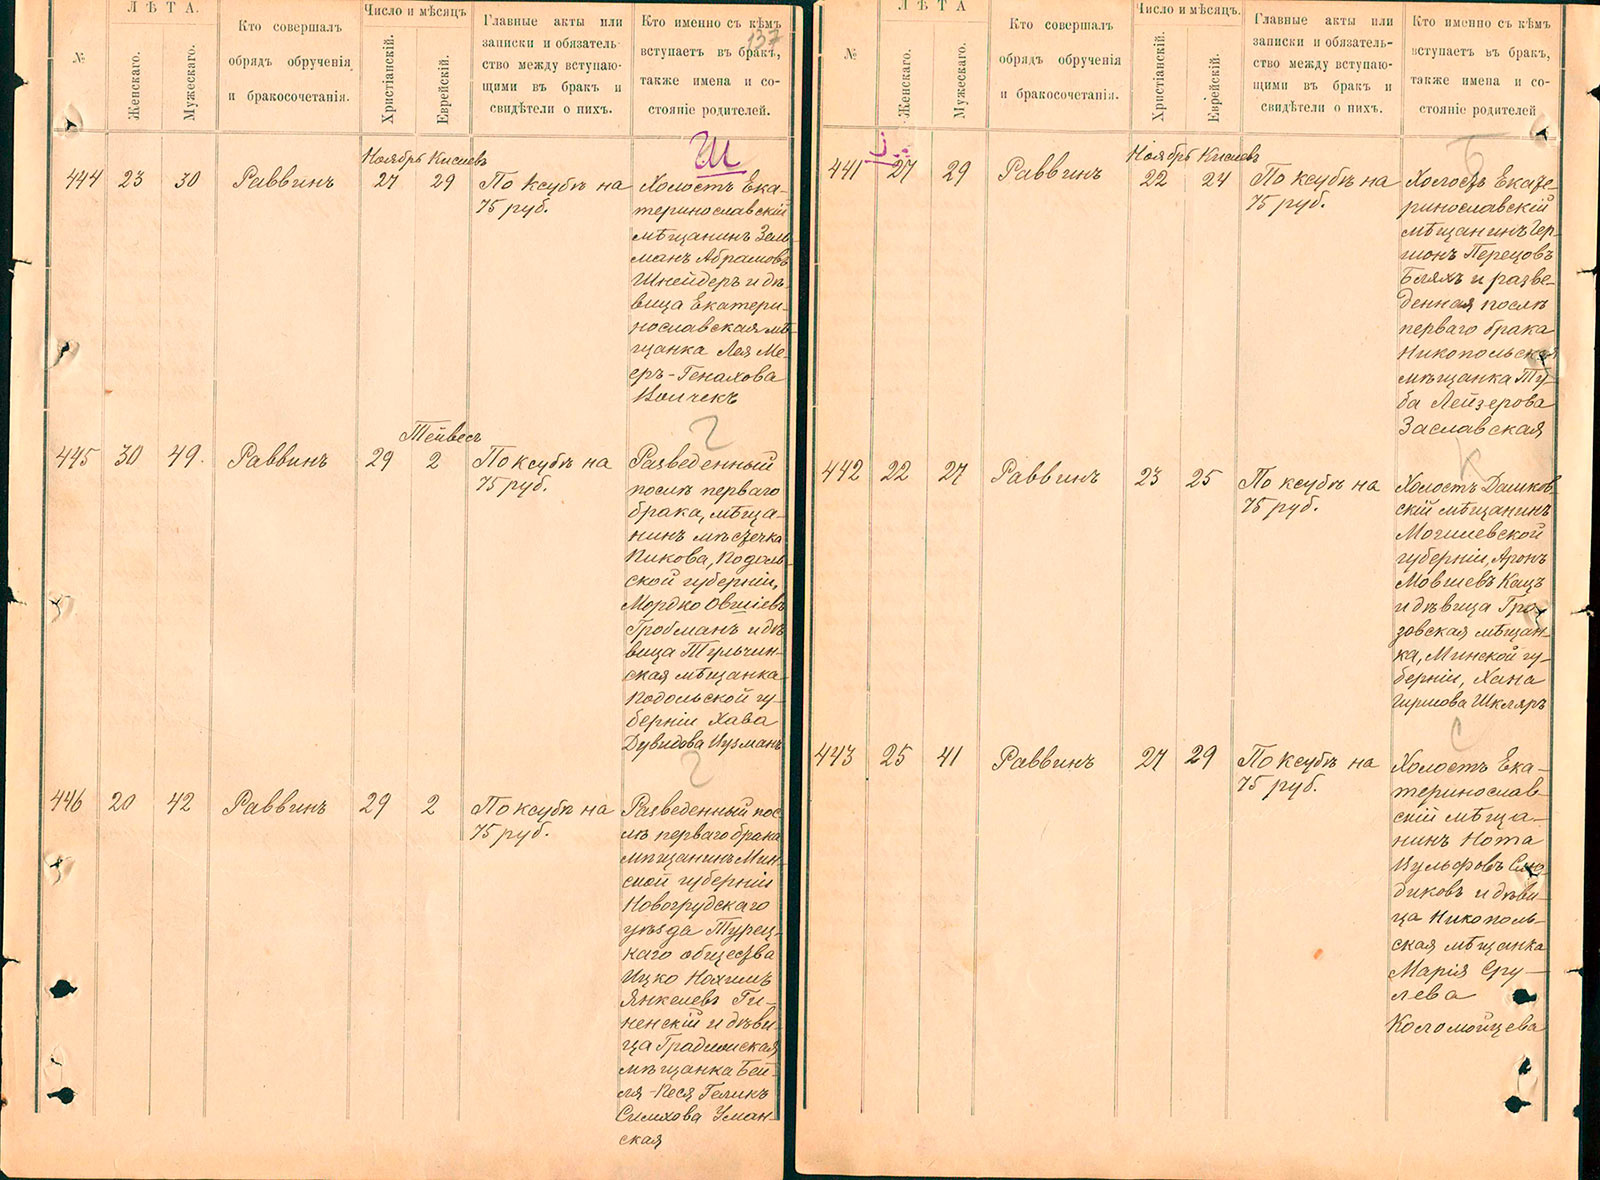 ЛѢТА.
№
Женскаго.
Мужескаго.
Кто совершалъ
обрядъ обрученія
и бракосочетанія.
Число и мѣсяцъ
Христіанскій.
Еврейскій.
Главные акты или
записки и обязатель-
ство между вступаю-
щими въ бракъ и
свидѣтели о нихъ.
Кто именно съ кѣмъ
вступаетъ въ бракъ,
также имена и со-
стояніе родителей.
137
Ш
Ноябрь Кислевъ
444 23 30 Раввинъ 27 29 По ксубѣ на
75 руб.
Холостъ Ека-
теринославскій
мѣщанинъ Зель-
манъ Абрамовъ
Шнейдеръ и дѣ-
вица Екатери-
нославская мѣ-
щанка Лея Ме-
еръ-Генахова
Волчекъ
Г
Тейвесъ
445 30 49. Раввинъ 29 2 По ксубѣ на
75 руб.
Разведенный
послѣ перваго
брака, мѣща-
нинъ мѣстечка
Пикова, Подоль-
ской губерніи,
Мордко Овшіевъ
Гройсманъ и дѣ-
вица Тульчин-
ская мѣщанка
Подольской гу-
берніи Хава
Дувидова
Г
446 20 42 Раввинъ 29 2 По ксубѣ на
75 руб.
Разведенный пос-
лѣ перваго брака
мѣщанинъ Мин-
ской губерніи
Новогрудскаго
уѣзда Турец-
каго общества
Ицко Нохимъ
Янкелевъ Ги-
ненскій и дѣви-
ца Градижская
мѣщанка Бей-
ля-Песя
Симхова Уман-
ская
ЛѢТА
№
Женскаго.
Мужескаго.
Кто совершалъ
обрядъ обрученія
и бракосочетанія.
Число и мѣсяцъ.
Христіанскій.
Еврейскій.
Главные акты или
записки и обязатель-
ство между вступаю-
щими въ бракъ и
свидѣтели о нихъ.
Кто именно съ кѣмъ
вступаетъ въ бракъ,
также имена и со-
стояніе родителей
Б
Ноябрь Кислевъ
441 27 29 Раввинъ 22 24 По ксубѣ на
75 руб.
Холостъ Екате-
ринославскій
мѣщанинъ Гер-
шонъ Перецовъ
Бляхъ и разве-
денная послѣ
перваго брака
Никопольская
мѣщанка Ту-
ба Лейзерова
Заславская
К
442 22 27 Раввинъ 23 25 По ксубѣ на
75 руб.
Холостъ Дашков-
скій мѣщанинъ
Могилевской
губерніи, Аронъ
Мовшевъ Кацъ
и дѣвица Гро-
зовская мѣщан-
ка, Минской гу-
берніи, Хана
Гиршова Шкляръ
С
443 25 41 Раввинъ 27 29 По ксубѣ на
75 руб.
Холостъ Ека-
теринослав-
скій мѣща-
нинъ Нота
Вульфовъ Сыр-
диковъ и дѣви-
ца Никополь-
ская мѣщанка
Марія Сру-
лева
Коломойцева